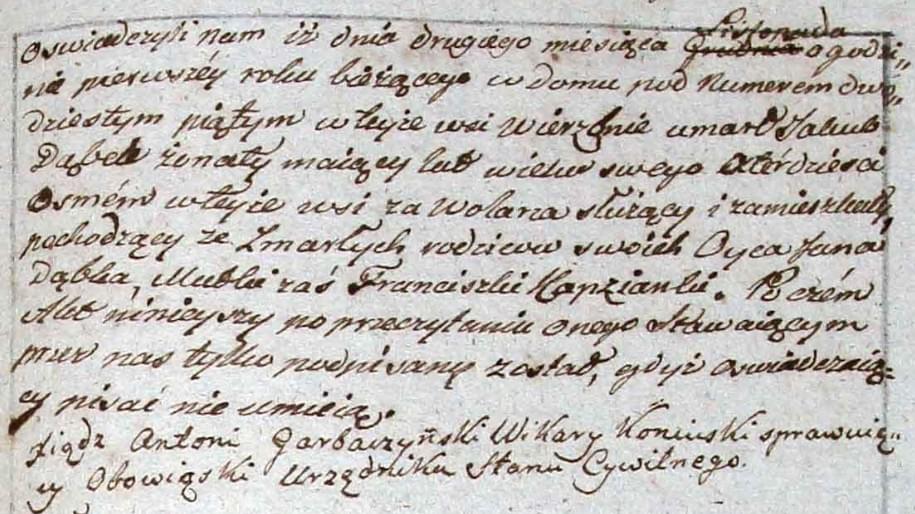 Oswiadczyli nam iż dnia drugiego miesiąca Listopada Grudnia o godzi„
nie pierwszéy roku bieżącego w domu pod Numerem dwó„
dziestym piątym w teyże wsi Wierzbnie umarł Jakub
Dąbek żonaty maiący lat wieku swego czterdziesci
osmém w teyże wsi za Wolarza służący i zamieszkały,
pochodzący ze zmarłych rodziców swoich Oyca Jana
Dąbka, Matki zaś Franciszki Kapzianki. Po czém
Akt ninieyszy po przeczytaniu onego Stawaiącym
przez nas tylko podpisany został, gdyż oswiadczaią=
cy pisać nie umieią.
Xiądz Antoni Garbaczyński Wikary Koniuski sprawuią„
cy Obowiąski Urzędnika Stanu Cywilnego.